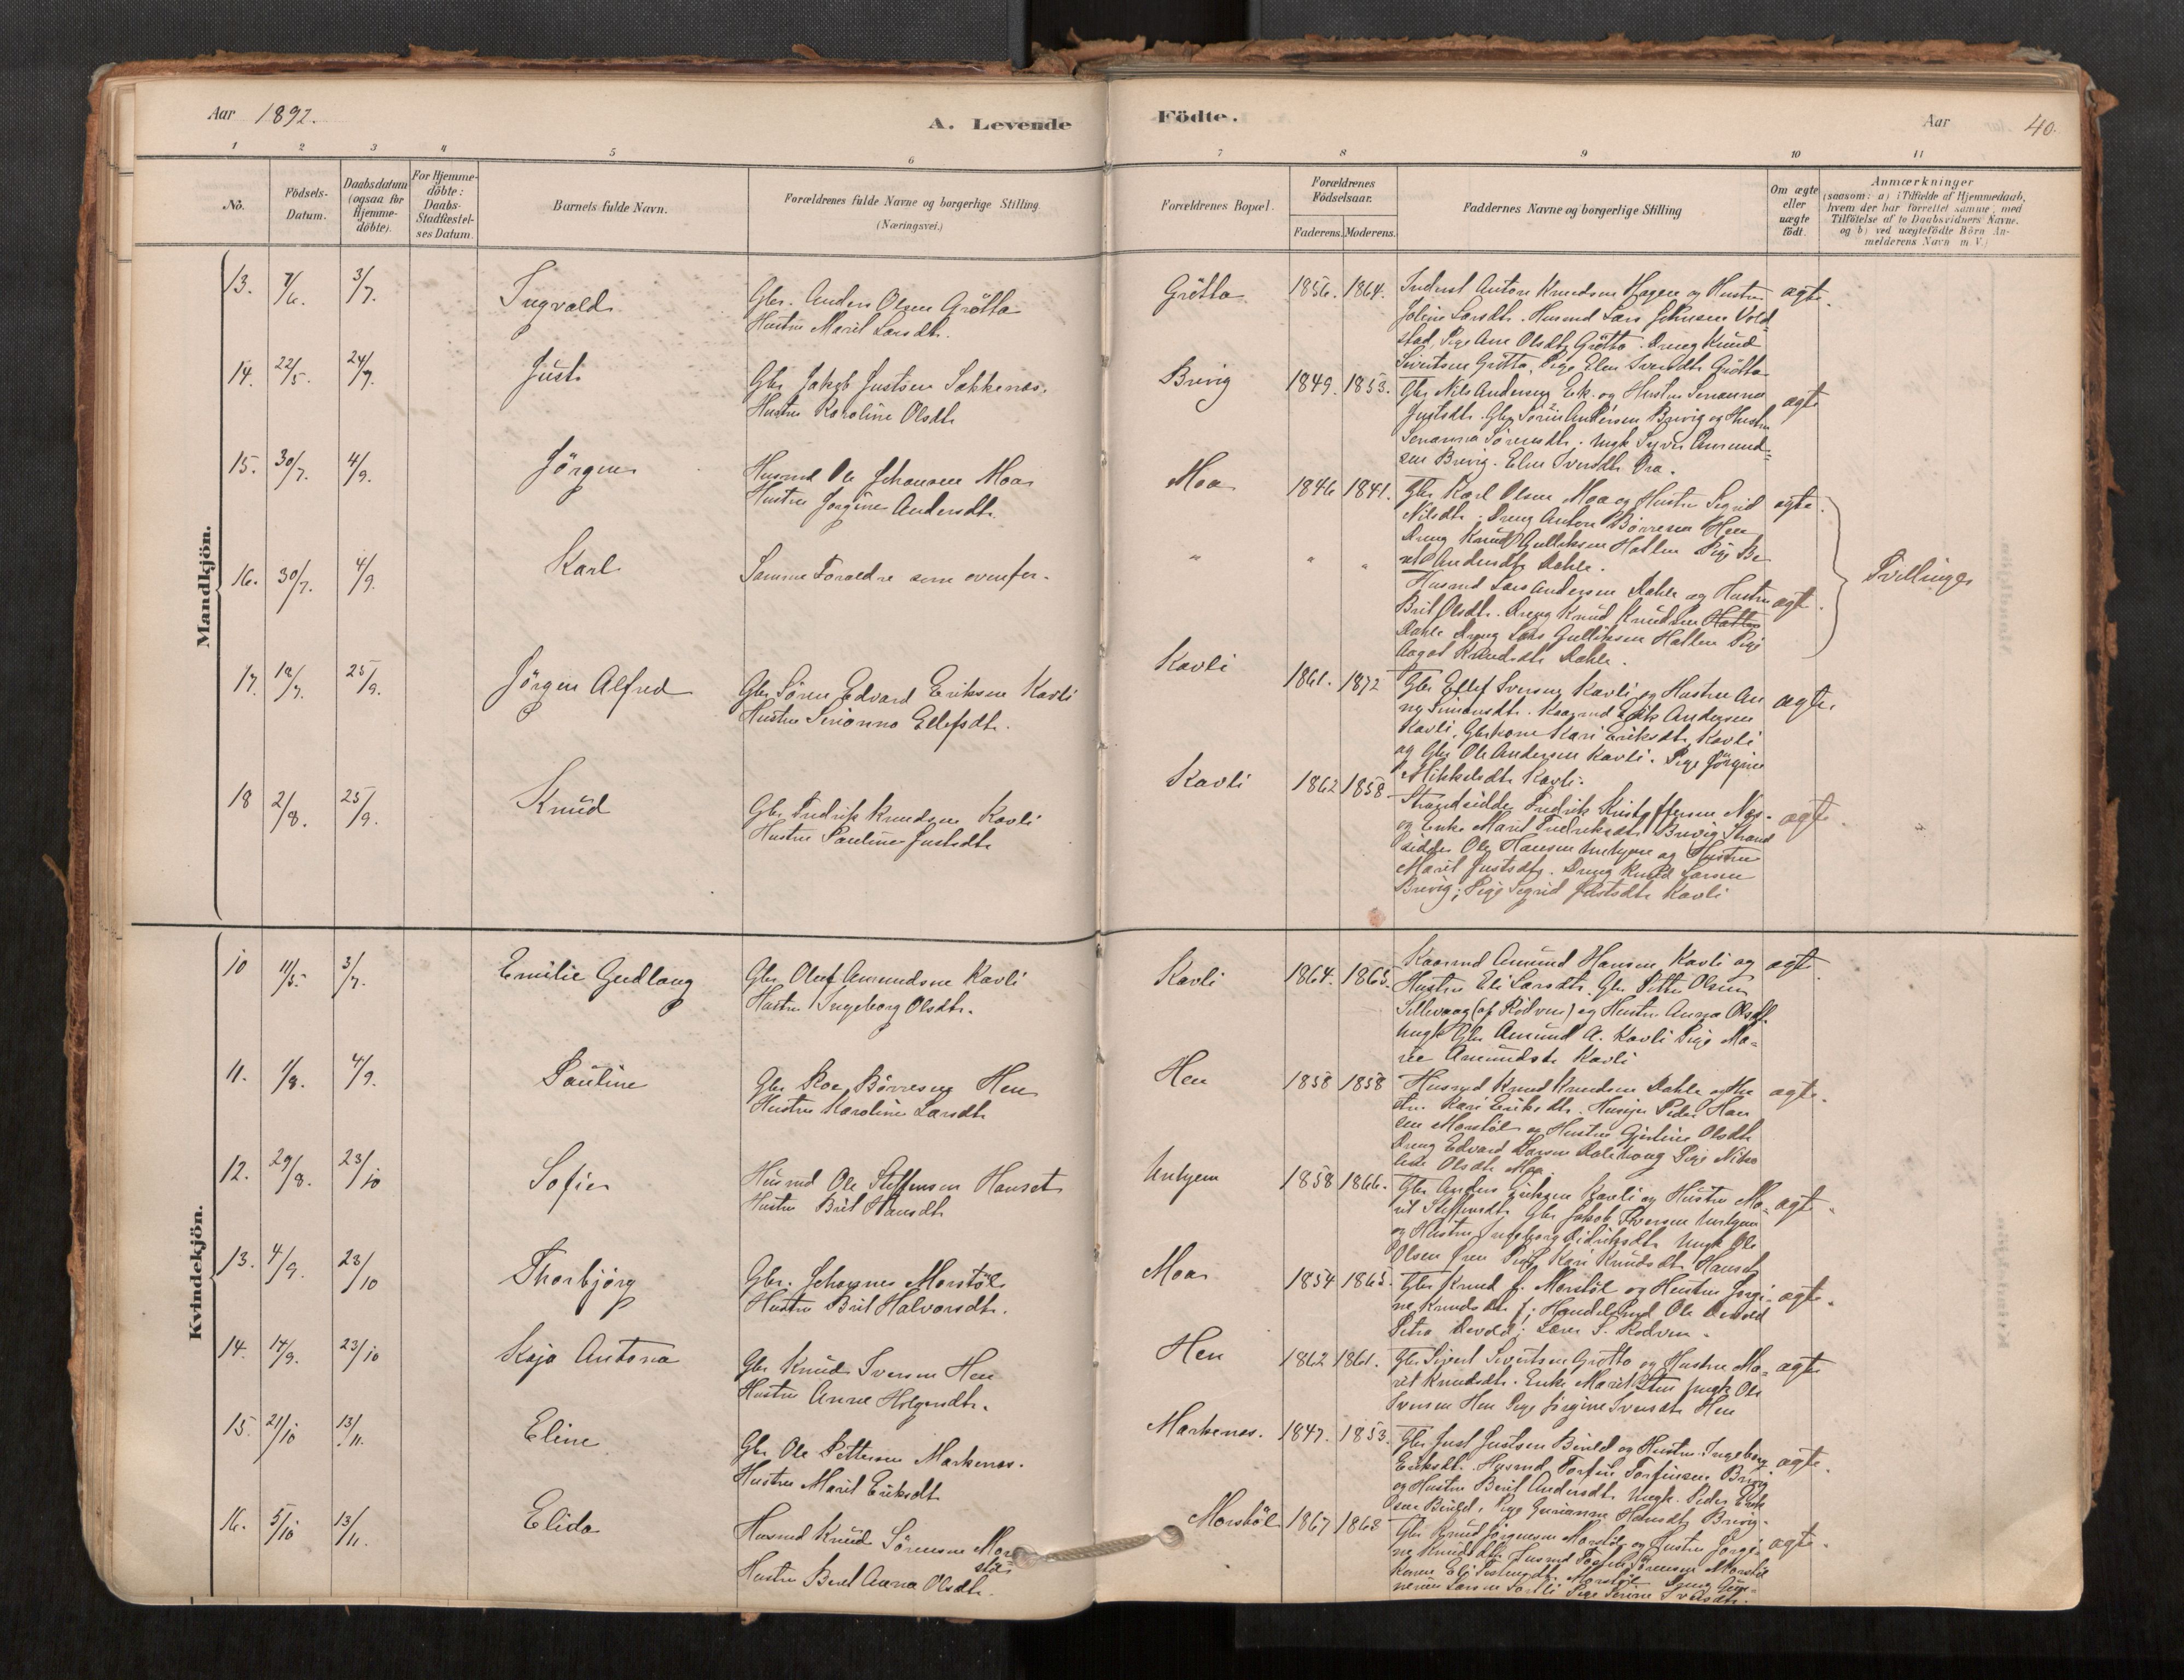 Aar 1892.
A. Levende
Födte.
Aar
40.
1 2 3 4 5 6 7 8 9 10 11
No.
Födsels-
Datum.
Daabsdatum
(ogsaa for
Hjemme-
döbte).
For Hjemme-
döbte:
Daabs-
Stadfæstel-
ses Datum.
Barnets fulde Navn.
Forældrenes fulde Navne og borgerlige Stilling
(Næringsvei.)
Forældrenes Bopæl.
Forældrenes
Födselsaar.
Faderens. Moderens.
Faddernes Navne og borgerlige Stilling
Om ægte
eller
uægte
födt.
Anmærkninger
(saasom: a) i Tilfælde af Hjemmedaab,
hvem der har forrettet samme, med
Tilföielse af to Daabsvidners Navne.
og b) ved uægtefödte Börn An-
melderens Navn m. V.)
Mandkjön.
13. 7/6. 3/7. Ingvald
Gbr. Anders Olsen Grötta
Hustru Marit Larsdtr.
Grötta 1856. 1864.
Indерst Anton Knudsen Hagen og Hustru
Joline Larsdtr. Husmd Lars Johnsen Vold-
stad, Pige Ane Olsdtr Grötta. Dreng Knud
Sivertsen Grötta, Pige Elen Iversdtr Grötta
ægte.
14. 22/5. 24/7. Just
Gbr Jakob Justsen Sakkenes.
Hustru Karoline Olsdtr
Brevig 1849. 1853.
Gbr Nils Andersen Eik. og Hustru Serianna
Justsdtr. Gbr Sören Andersen Brevig og Hustru
Serianna Sörensdtr. Ungk Syver Amund-
sen Brevig. Elen Iversdtr Øra.
ægte
15. 30/7. 4/9. Jörgen
Husmd Ole Johansen Moa
Hustru Jörgine Andersdtr.
Moa 1846 1841.
Gbr Karl Olsen Moa og Hustru Sigrid
Nilsdtr. Dreng Anton Börresen Hen
Dreng Knud Gulliksen Hatlen Pige Be-
rit Andersdtr Dahle.
ægte.
16. 30/7. 4/9. Karl
Samme Foraeldre som ovenfor.
" " "
Husmd Lars Andersen Dahle og Hustru
Brit Olsdtr. Dreng Knud Knudsen Hatlen
Dahle Dreng Lars Gulliksen Hatlen Pige
Aagot Knudsdtr Dahle.
ægte.
Tvillinger
17. 18/7. 25/9. Jörgen Alfred
Gbr Sören Edvard Eriksen Kavli
Hustru Serianna Ellefsdtr.
Kavli 1861. 1872
Gbr Ellef Iversen Kavli og Hustru An-
ne Simonsdtr. Kaarmd Erik Andersen
Kavli, Gbrkone Kari Eriksdtr Kavli
og Gbr Ole Andersen Kavli. Pige Jörgine
Mikkelsdtr Kavli.
ægte.
18 2/8. 25/9. Knud
Gbr Fredrik Knudsen Kavli
Hustru Pauline Justsdtr
Kavli 1862 1858
Strandsidder Fredrik Kristoffersen Næs-
og Enke Marit Fredriksdtr Brevig Strand
sidder Ole Hansen Unhjem og Hustru
Marit Justsdtr. Dreng Knud Larsen
Brevig; Pige Sigrid Justsdtr Kavli
ægte
Kvindekjön.
10 11/5. 3/7. Emilie Gudlaug
Gbr Oluf Amundsen Kavli
Hustru Ingeborg Olsdtr.
Kavli 1864. 1865.
Kaarmd Amund Hansen Kavli og
Hustru Eli Larsdtr. Gbr Petter Olsen
Sillevaag (af Rödven) og Hustru Anna Olsdtr.
Ungk Gbr Amund A. Kavli Pige Ma-
rie Amundsdtr Kavli
ægte
11. 1/8. 4/9. Pauline
Gbr Roe Börresen Hen
Hustru Karoline Larsdtr
Hen 1858 1858
Husmd Knud Knudsen Dahle og Hu-
stru Kari Eriksdtr. Husmd Peder Han
sen Morstöl og Hustru Gjertine Olsdtr
Dreng Edvard Larsen Dalehoug Pige Niko-
line Olsdtr Moa.
ægte.
12. 29/8. 23/10 Sofie
Husmd Ole Steffensen Hanset
Hustru Brit Hansdtr
Unhjem 1858 1866.
Gbr Anders Eriksen Kavli og Hustru Ma-
rit Steffensdtr Gbr Jakob Iversen Unhjem
og Hustru Ingeborg Didriksdtr Ungk Ole
Olsen Øren Pige Kari Knudsdtr Hanset
ægte.
13. 4/9. 23/10 Thorbjörg
Gbr. Johannes Morstöl
Hustru Brit Halvorsdtr.
Moa 1854 1865.
Gbr Knud J. Morstöl og Hustru Jörgi-
ne Knudsdtr; Handelsmd Ole Devold
Petra Devold; Lærer S. Rödven.
ægte.
14. 14/9. 23/10 Kaja Antona
Gbr Knud Iversen Hen
Hustru Anne Holgersdtr.
Hen 1862 1861.
Gbr Sivert Sivertsen Grötta og Hustru Ma-
rit Knudsdtr. Enke Marit Hen Ungk Ole
Iversen Hen Pige Jörgine Iversdtr Hen
ægte
15. 21/10 13/11. Eline
Gbr Ole Pettersen Markenes.
Hustru Marit Eriksdtr
Markenes. 1847. 1853.
Gbr Just Justsen Bireld og Hustru Ingeborg
Eriksdtr. Husmd Torfin Torfinsen Brevig
og Hustru Berit Andersdtr Ungk. Peder Erik
sen Bireld, Pige Gurianna Hansdtr Brevig.
ægte.
16. 5/10 13/11. Elida
Husmd Knud Sörensen Mor-
stöl
Hustru Berit Anna Olsdtr.
Morstöl 1867 1868
Gbr Knud Jörgensen Morstöl og Hustru Jörgi-
ne Knudsdtr Husmd Sörensen Morstöl
Kone Eli Morstöl Dreng
Larsen Pige Iversdtr.
ægte.